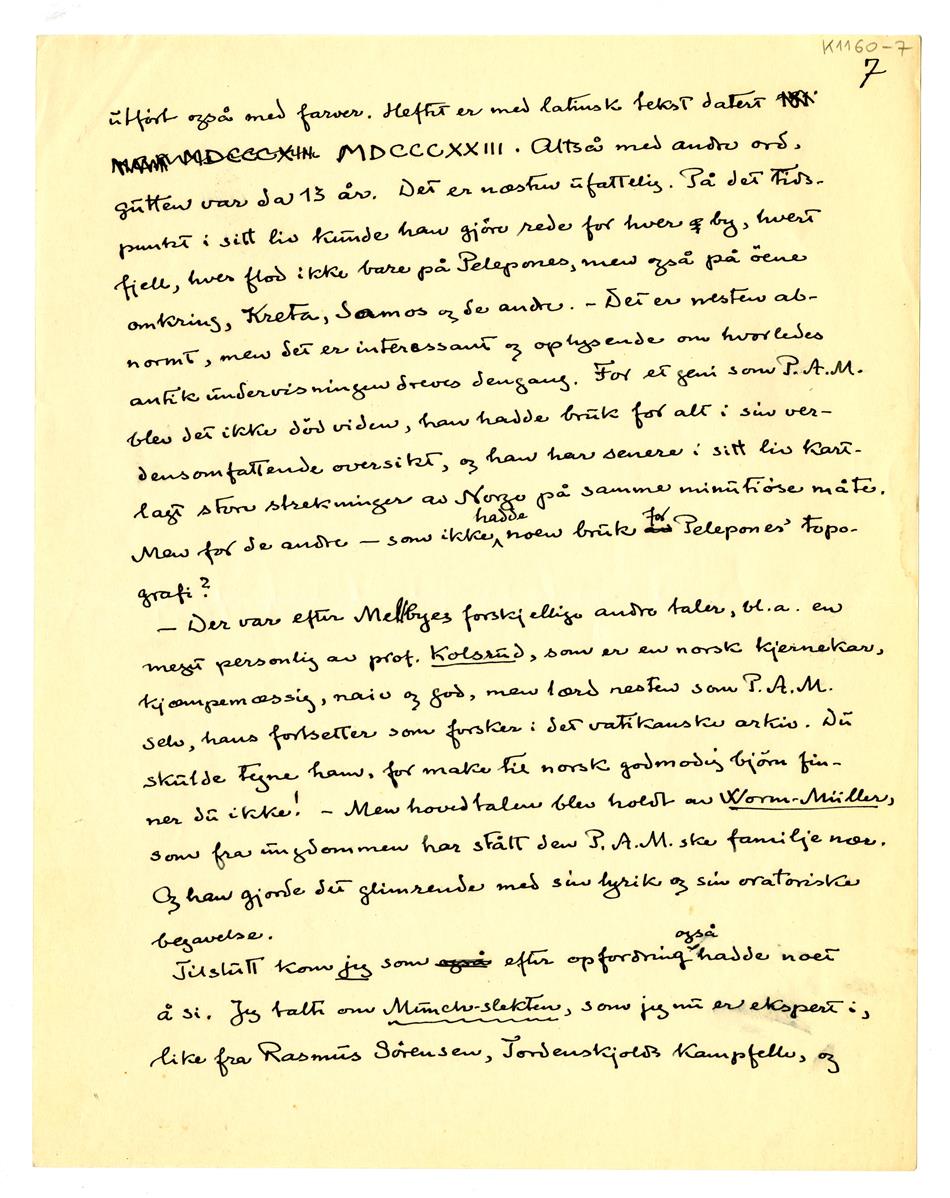 K1160-7
7
utført også med farver. Heftet er med latinsk tekst datert
MDCCCXIII. MDCCCXXIII. Altså med andre ord,
gutten var da 13 år. Det er næsten ufattelig. På det tids-
punkt i sitt liv kunde han gjöre rede for hver by, hvert
fjell, hver flod ikke bare på Pelepones, men også på öene
omkring, Kreta, Samos og de andre. - Det er nesten ab-
normt, men det er interessant og oplysende om hvorledes
antik undervisningen dreves dengang. For et geni som P.A.M.
blev det ikke död viden, han hadde bruk for alt i sin ver-
densomfattende oversikt, og han har senere i sitt liv kart-
lagt store strekninger av Norge på samme minutiöse måte.
Men for de andre – som ikke hadde noen bruk for Pelepones' topo-
grafi?
– Der var efter Mellbyes forskjellige andre taler, bl.a. en
meget personlig av prof. Kolsrud, som er en norsk kjernekar,
kjæmpemæssig, naiv og god, men lærd nesten som P.A.M.
selv, hans fortsetter som forsker i det vatikanske arkiv. Du
skulde tegne ham, for make til norsk godmodig björn fin-
ner du ikke! - Men hovedtalen blev holdt av Worm-Müller,
som fra ungdommen har stått den P.A.M.ske familje nær.
Og han gjorde det glimrende med sin lyrik og sin oratoriske
begavelse.
Tilslutt kom jeg som også efter opfordring også hadde noet
å si. Jeg talte om Munch-slekten, som jeg nu er ekspert i,
like fra Rasmus Sörensen, Tordenskjolds kampfelle, og